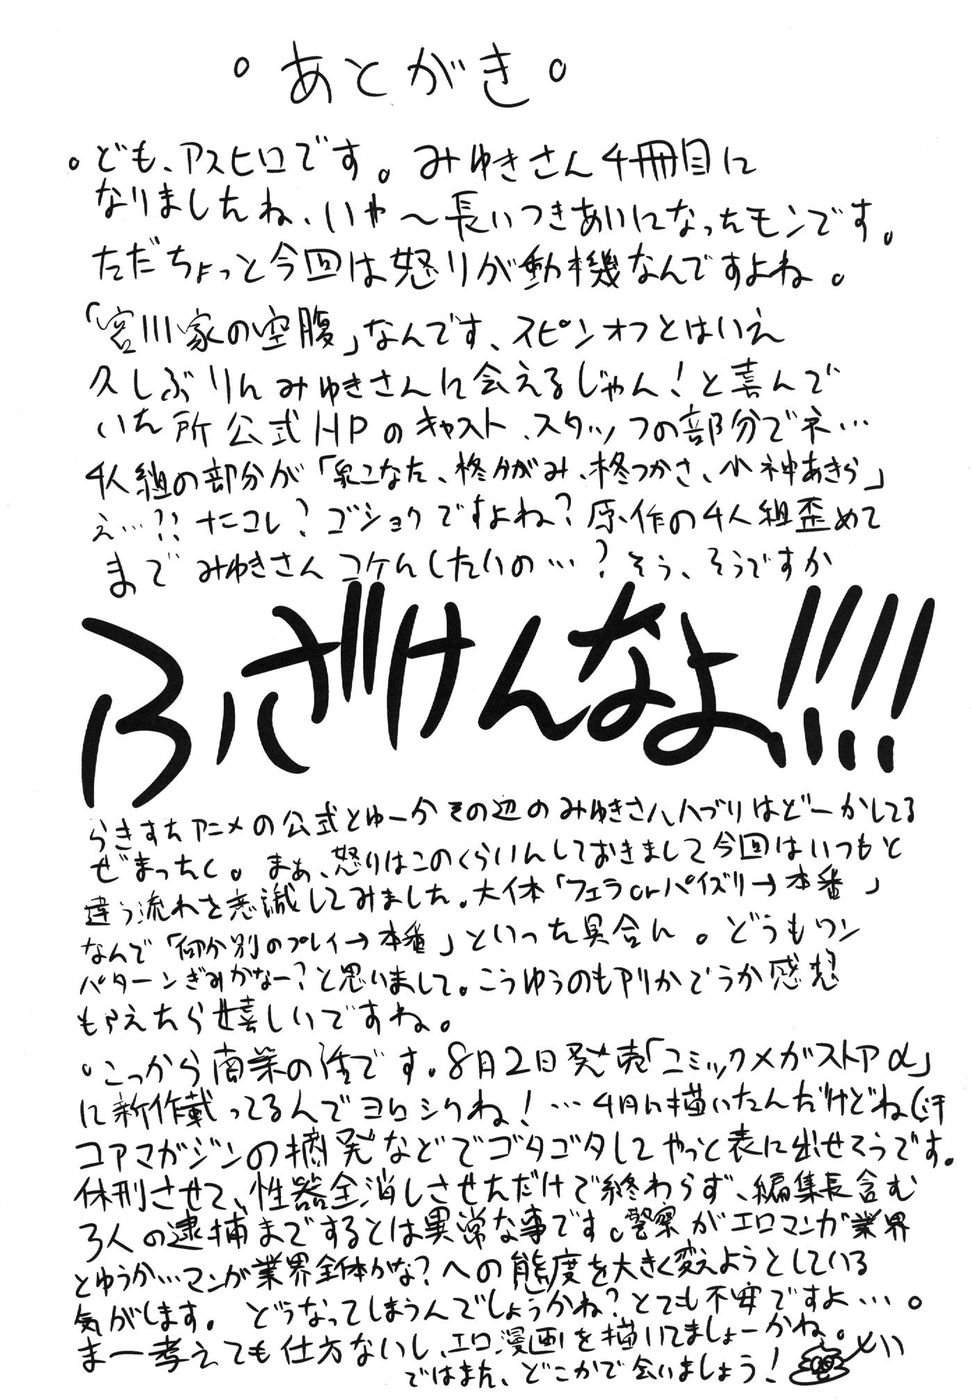 。あとがき。
。ども、アスヒロです。みゆきさん4冊目に
なりましたね、いや〜長いつきあいになったモンです。
ただちょっと今回は怒りが動機なんですよね。
「宮川家の空腹」なんです、スピンオフとはいえ
久しぶりんみゆきさんに会えるじゃん!と喜んで
いた所公式HPのキャスト、スタッフの部分でネ…
4人組の部分が「泉こなた、柊かがみ、柊つかさ、小神あきら」
え…?? ナニコレ?ゴショクですよね?原作の4人組歪めて
までみゆきさんコケんしたいの…?そう、そうですか
ふざけんなよ!!!!
らきすたアニメの公式とゆーかその辺のみゆきさんハブりはどーかしてる
ぜまったく。まぁ、怒りはこのくらいんしておきまして今回はいつもと
違う流れを意識してみました。大体「フェラorパイズリ→本番」
なんで「何か別のプレイ→本番」といった具合ん。どうもワン
パターンぎみかなー?と思いまして。こうゆうのもアリかどうか感想
もらえたら嬉しいですね。
。こっから商業の話です。8月2日発売「コミックメガストアα」
に新作載ってるんでヨロシクね!…4月に描いたんだけどね(汗
コアマガジンの摘発などでゴタゴタしてやっと表に出せそうです。
休刊させて、性器全消しさせただけで終わらず、編集長含む
3人の逮捕までするとは異常な事です。警察がエロマンガ業界
とゆうか…マンガ業界全体かな?への態度を大きく変えようとしている
気がします。どうなってしまうんでしょうかね?とても不安ですよ…。
まー考えても仕方ないし、エロ漫画を描いてましょーかね。
ではまた、どこかで会いましょう!